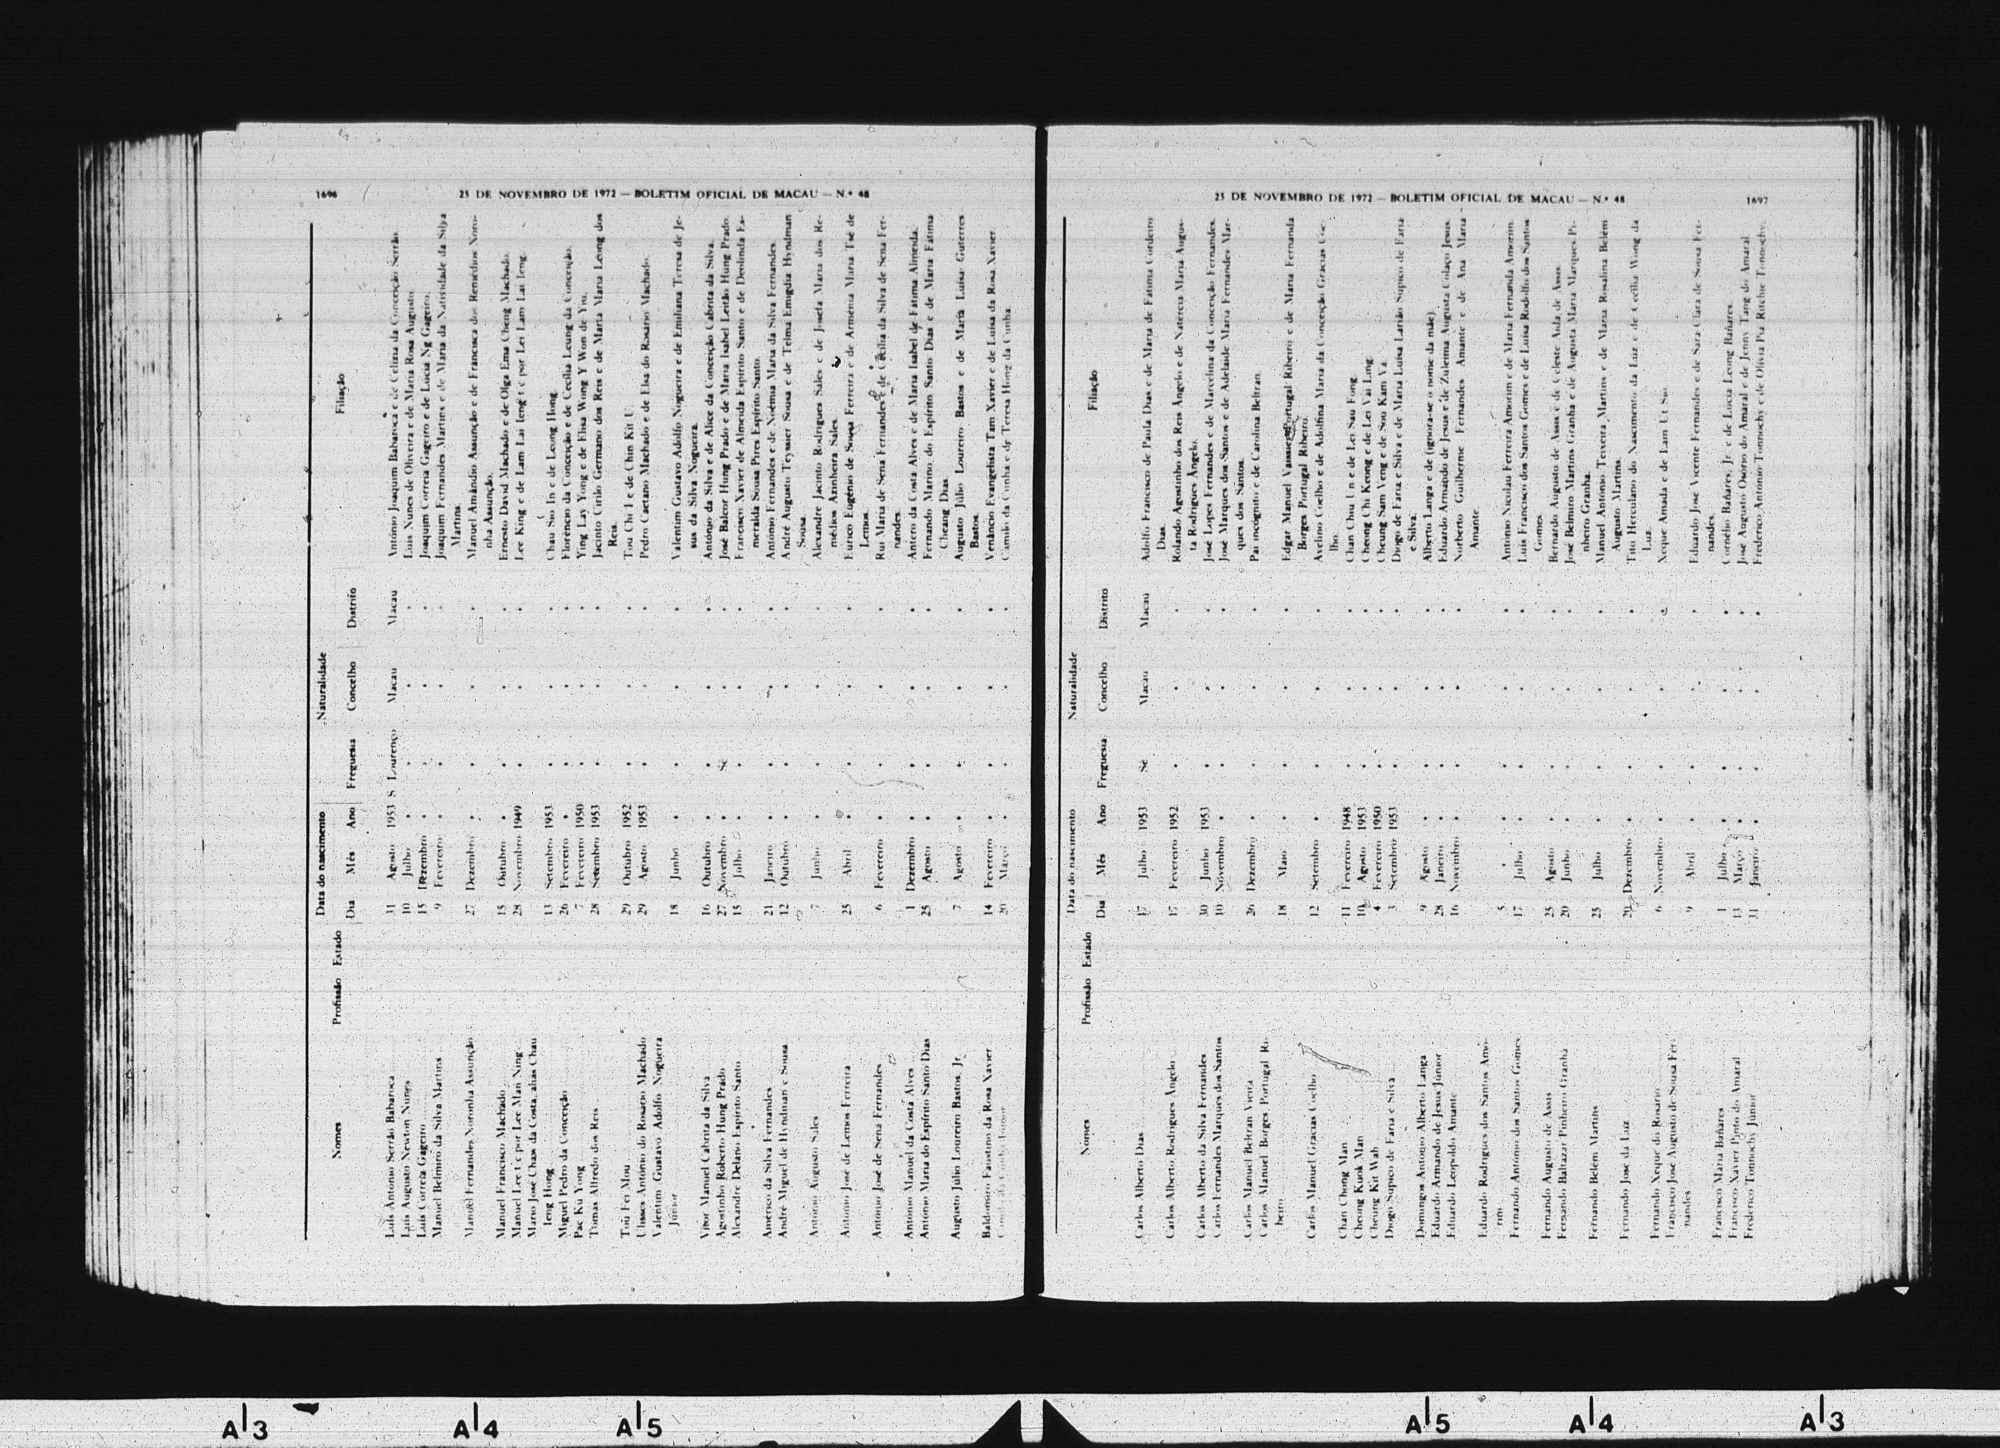 1696
25 DE NOVEMBRO DE 1972 — BOLETIM OFICIAL DE MACAU — N.º 48
Nomes Profissão Estado Data do nascimento Naturalidade Filiação
Dia Mês Ano Freguesia Concelho Distrito
Luís António Serrão Babaroca 31 Agosto 1953 S. Lourenço Macau Macau António Joaquim Babaroca e de Celizia da Conceição Serrão.
Luís Augusto Newton Nunes 10 Julho » » » » Luís Nunes de Oliveira e de Maria Rosa Augusto.
Luís Correia Gageiro 15 Dezembro » » » » Joaquim Correia Gageiro e de Lúcia Ng Gageiro.
Manuel Belmiro da Silva Martins 9 Fevereiro » » » » Joaquim Fernandes Martins e de Maria da Natividade da Silva
Martins.
Manuel Fernandes Noronha Assunção 27 Dezembro » » » » Manuel Amândio Assunção e de Francisca dos Remédios Noro-
nha Assunção.
Manuel Francisco Machado 15 Outubro » » » » Ernesto David Machado e de Olga Ema Cheng Machado.
Manuel Lee t c por Lee Man Ning 28 Novembro 1949 » » » Lee King e de Lam Lai Ieng t c por Lei Lam Lai Ieng.
Mário José Chaas da Costa, aliás Chau
Ieng Hong 13 Setembro 1953 » » » Chau Sio In e de Leong Hong.
Miguel Pedro da Conceição 26 Fevereiro » » » » Florêncio da Conceição e de Cecília Leung da Conceição.
Pac Ku Yong 7 Fevereiro 1950 » » » Ying Lay Yong e de Elisa Wong Y Won de Yu.
Tomás Alfredo dos Reis 28 Setembro 1953 » » » Jacinto Cirilo Germano dos Reis e de Marta Maria Leong dos
Reis.
Tou Fei Mou 29 Outubro 1952 » » » Tou Chi I e de Chin Kit U.
Ulisses António do Rosário Machado 29 Agosto 1953 » » » Pedro Caetano Machado e de Elsa do Rosário Machado.
Valentim Gustavo Adolfo Nogueira
Júnior 18 Junho » » » » Valentim Gustavo Adolfo Nogueira e de Emiliana Teresa de Je-
sus da Silva Nogueira.
Vítor Manuel Cabrita da Silva 16 Outubro » » » » António da Silva e de Alice da Conceição Cabrita da Silva.
Agostinho Roberto Hung Prado 27 Novembro » Sé » » José Balcor Hung Prado e de Maria Isabel Leitão Hung Prado.
Alexandre Delano Espírito Santo 15 Julho » » » » Francisco Xavier de Almeida Espírito Santo e de Deolinda Es-
meralda Sousa Pires Espírito Santo.
Américo da Silva Fernandes 21 Janeiro » » » » António Fernandes e de Noémia Maria da Silva Fernandes.
André Miguel de Hyndman e Sousa 12 Outubro » » » » André Augusto Teyssier Sousa e de Telma Emigdia Hyndman
Sousa.
António Augusto Sales 7 Junho » » » » Alexandre Jacinto Rodrigues Sales e de Josefa Maria dos Re-
médios Azinheira Sales.
António José de Lemos Ferreira 25 Abril » » » » Eurico Eugénio de Sousa Ferreira e de Arménia Maria Tsé de
Lemos.
António José de Sena Fernandes 6 Fevereiro » » » » Rui Maria de Sena Fernandes e de Cecília da Silva de Sena Fer-
nandes.
António Manuel da Costa Alves 1 Dezembro » » » » Antero da Costa Alves e de Maria Isabel de Fátima Almeida.
António Maria do Espírito Santo Dias 25 Agosto » » » » Fernando Marino do Espírito Santo Dias e de Maria Fátima
Cheang Dias.
Augusto Júlio Loureiro Bastos, Jr. 7 Agosto » » » » Augusto Júlio Loureiro Bastos e de Maria Luísa Guterres
Bastos.
Baldomiro Faustino da Rosa Xavier 14 Fevereiro » » » » Venâncio Evangelista Tam Xavier e de Luísa da Rosa Xavier.
20 Março » » » » Camilo da Cunha e de Teresa Hong da Cunha.
25 DE NOVEMBRO DE 1972 — BOLETIM OFICIAL DE MACAU — N.º 48
1697
Nomes Profissão Estado Data do nascimento Naturalidade Filiação
Dia Mês Ano Freguesia Concelho Distrito
Carlos Alberto Dias 17 Julho 1953 Sé Macau Macau Adolfo Francisco de Paula Dias e de Maria de Fátima Cordeiro
Dias.
Carlos Alberto Rodrigues Ângelo 17 Fevereiro 1952 » » » Rolando Agostinho dos Reis Ângelo e de Natércia Maria Augus-
ta Rodrigues Ângelo.
Carlos Alberto da Silva Fernandes 30 Junho 1953 » » » José Lopes Fernandes e de Marcelina da Conceição Fernandes.
Carlos Fernandes Marques dos Santos 10 Novembro » » » » José Marques dos Santos e de Adelaide Maria Fernandes Mar-
ques dos Santos.
Carlos Manuel Beltran Vieira 26 Dezembro » » » » Pai incógnito e de Carolina Beltran.
Carlos Manuel Borges Portugal Ri-
beiro 18 Maio » » » » Edgar Manuel Portugal Ribeiro e de Maria Fernanda
Borges Portugal Ribeiro.
Carlos Manuel Gracias Coelho 12 Setembro » » » » Avelino Coelho e de Adolfina Maria da Conceição Gracias Coe-
lho.
Chan Chong Man 11 Fevereiro 1948 » » » Chan Chou Un e de Lei Sau Fong.
Cheong Kuok Man 10 Agosto 1953 » » » Cheong Chi Keong e de Lei Vai Ling.
Cheung Kit Wah 4 Fevereiro 1950 » » » Cheung Sam Veng e de Sou Kam Va.
Diogo Supico de Faria e Silva 3 Setembro 1953 » » » Diogo de Faria e Silva e de Maria Luísa Larião Supico de Faria
e Silva.
Domingos António Alberto Langa 9 Agosto » » » » Alberto Langa e de (ignora-se o nome da mãe).
Eduardo Armando de Jesus Júnior 28 Janeiro » » » » Eduardo Armando de Jesus e de Zuleima Augusta Colaço Jesus.
Eduardo Leopoldo Amante 16 Novembro » » » » Norberto Guilherme Fernandes Amante e de Ana Maria
Amante.
Eduardo Rodrigues dos Santos Amo-
rim 5 » » » » » António Nicolau Ferreira Amorim e de Maria Fernanda Amorim.
Fernando António dos Santos Gomes 17 Julho » » » » Luís Francisco dos Santos Gomes e de Luísa Rodolfo dos Santos
Gomes.
Fernando Augusto de Assis 25 Agosto » » » » Bernardo Augusto de Assis e de Celeste Aida de Assis.
Fernando Baltazar Pinheiro Granha 20 Junho » » » » José Belmiro Martins Granha e de Augusta Maria Marques Pi-
nheiro Granha.
Fernando Belém Martins 25 Julho » » » » Manuel António Teixeira Martins e de Maria Rosalina Belém
Augusto Martins.
Fernando José da Luz 20 Dezembro » » » » Tito Herculano do Nascimento da Luz e de Cecília Wong da
Luz.
Fernando Xeque do Rosário 6 Novembro » » » » Xeque Amada e de Lam Ut Sio.
Francisco José Augusto de Sousa Fer-
nandes 9 Abril » » » » Eduardo José Vicente Fernandes e de Sara Clara de Sousa Fer-
nandes.
Francisco Maria Bañares 1 Julho » » » » Cornélio Bañares, Jr. e de Lúcia Leong Bañares.
Francisco Xavier Pinto do Amaral 13 Março » » » » José Augusto Osório do Amaral e de Jenny Tang do Amaral.
Frederico Tonnochy Júnior 31 Janeiro » » » » Frederico António Tonnochy e de Olívia Pia Ritchie Tonnochy.
A 3
A 4
A 5
A 5
A 4
A 3